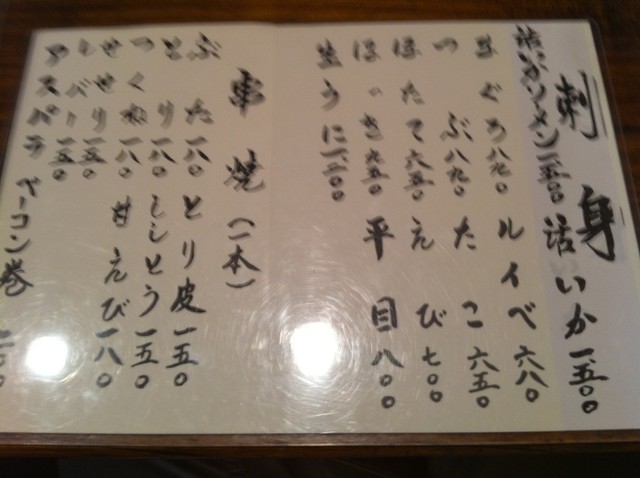 刺身
活いか 一、五〇〇
活いかソーメン 一、五〇〇
まぐろ 八九〇
ルイベ 六八〇
つぶ 八九〇
たこ 六五〇
ほたて 六五〇
えび 七〇〇
ほっき 九五〇
平目 八〇〇
生うに 一、二〇〇
串焼(一本)
ぶた 一八〇
とり皮 一五〇
とり 一八〇
ししとう 一五〇
つくね 一八〇
甘えび 一八〇
せせり 一五〇
レバー 一五〇
アスパラベーコン巻 二〇〇